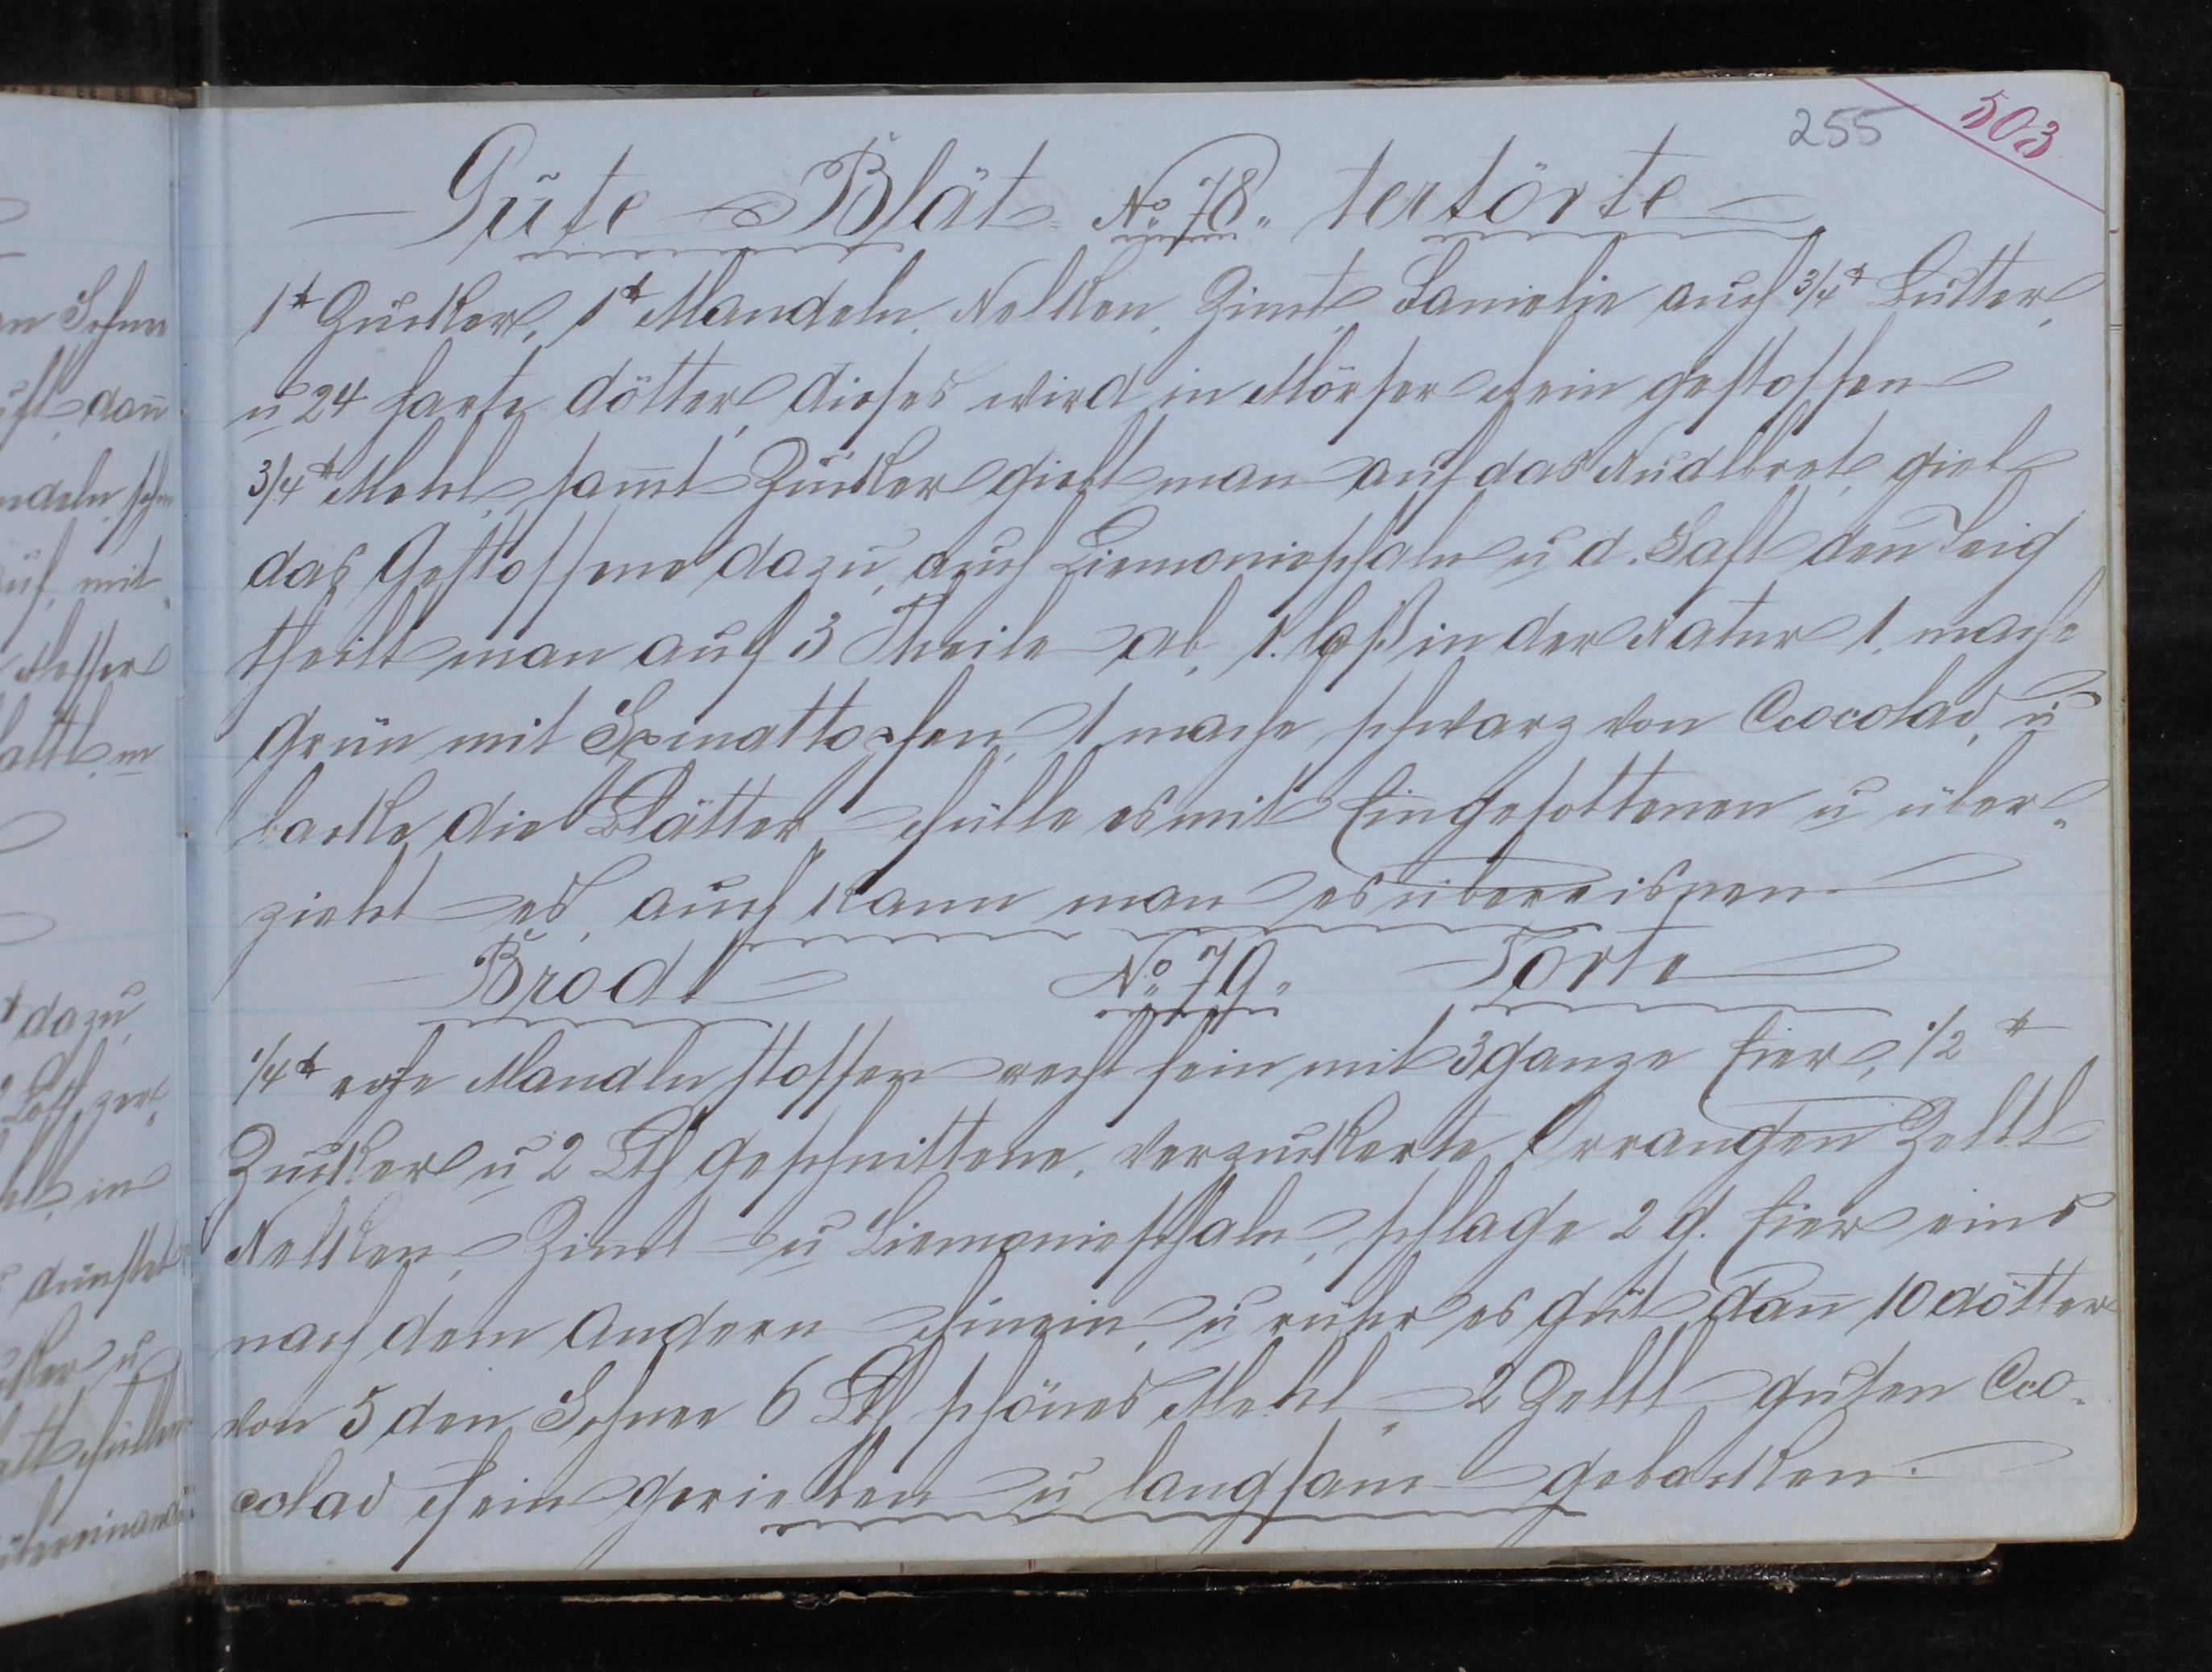 255 503
Gute Blät- No 78. tertorte
1 # Zucker, 1 # Mandeln, Nelken, Zimt, Fanielje auch 3/4 # Butter,
u 24 harte Dötter, dieses wird in Mörser fein gestossen
3/4 # Mehl, sam̄t Zucker giebt man auf das Nudlbret, gieb
das Gestossene dazu, auch Liemonieschaln u d. Saft den Teig
theilt man auf 3 Theile ab, 1. laß in der Natur 1, mache
grün mit Spinattopfen, 1 mache schwarz von Cocolad, u
backe die Blätter, fülle es mit Eingesottenen u über-
zieht es, auch kann man es übereisnen.
Brod No 79. Torte
1/4 # rohe Mandln stossen recht fein mit 3 ganze Eier, 1/2 #
Zucker u 2 Lth geschnittene, verzuckerte Orrangen Zeltl
Nelken, Zimt u Liemonieschaln, schlage 2 g. Eier eins
nach dem Andern hinein, u rühr es gut dan̄ 10 Dötter
von 5 den Schnee 6 Lth schönes Mehl, 2 Zeltl guten Cco-
colad fein gerieben u langsam gebacken.
an Schnee
dan̄
mit
Messer
dazu,
Loth, zer-
in
dünstet
u
füllen
übereinander